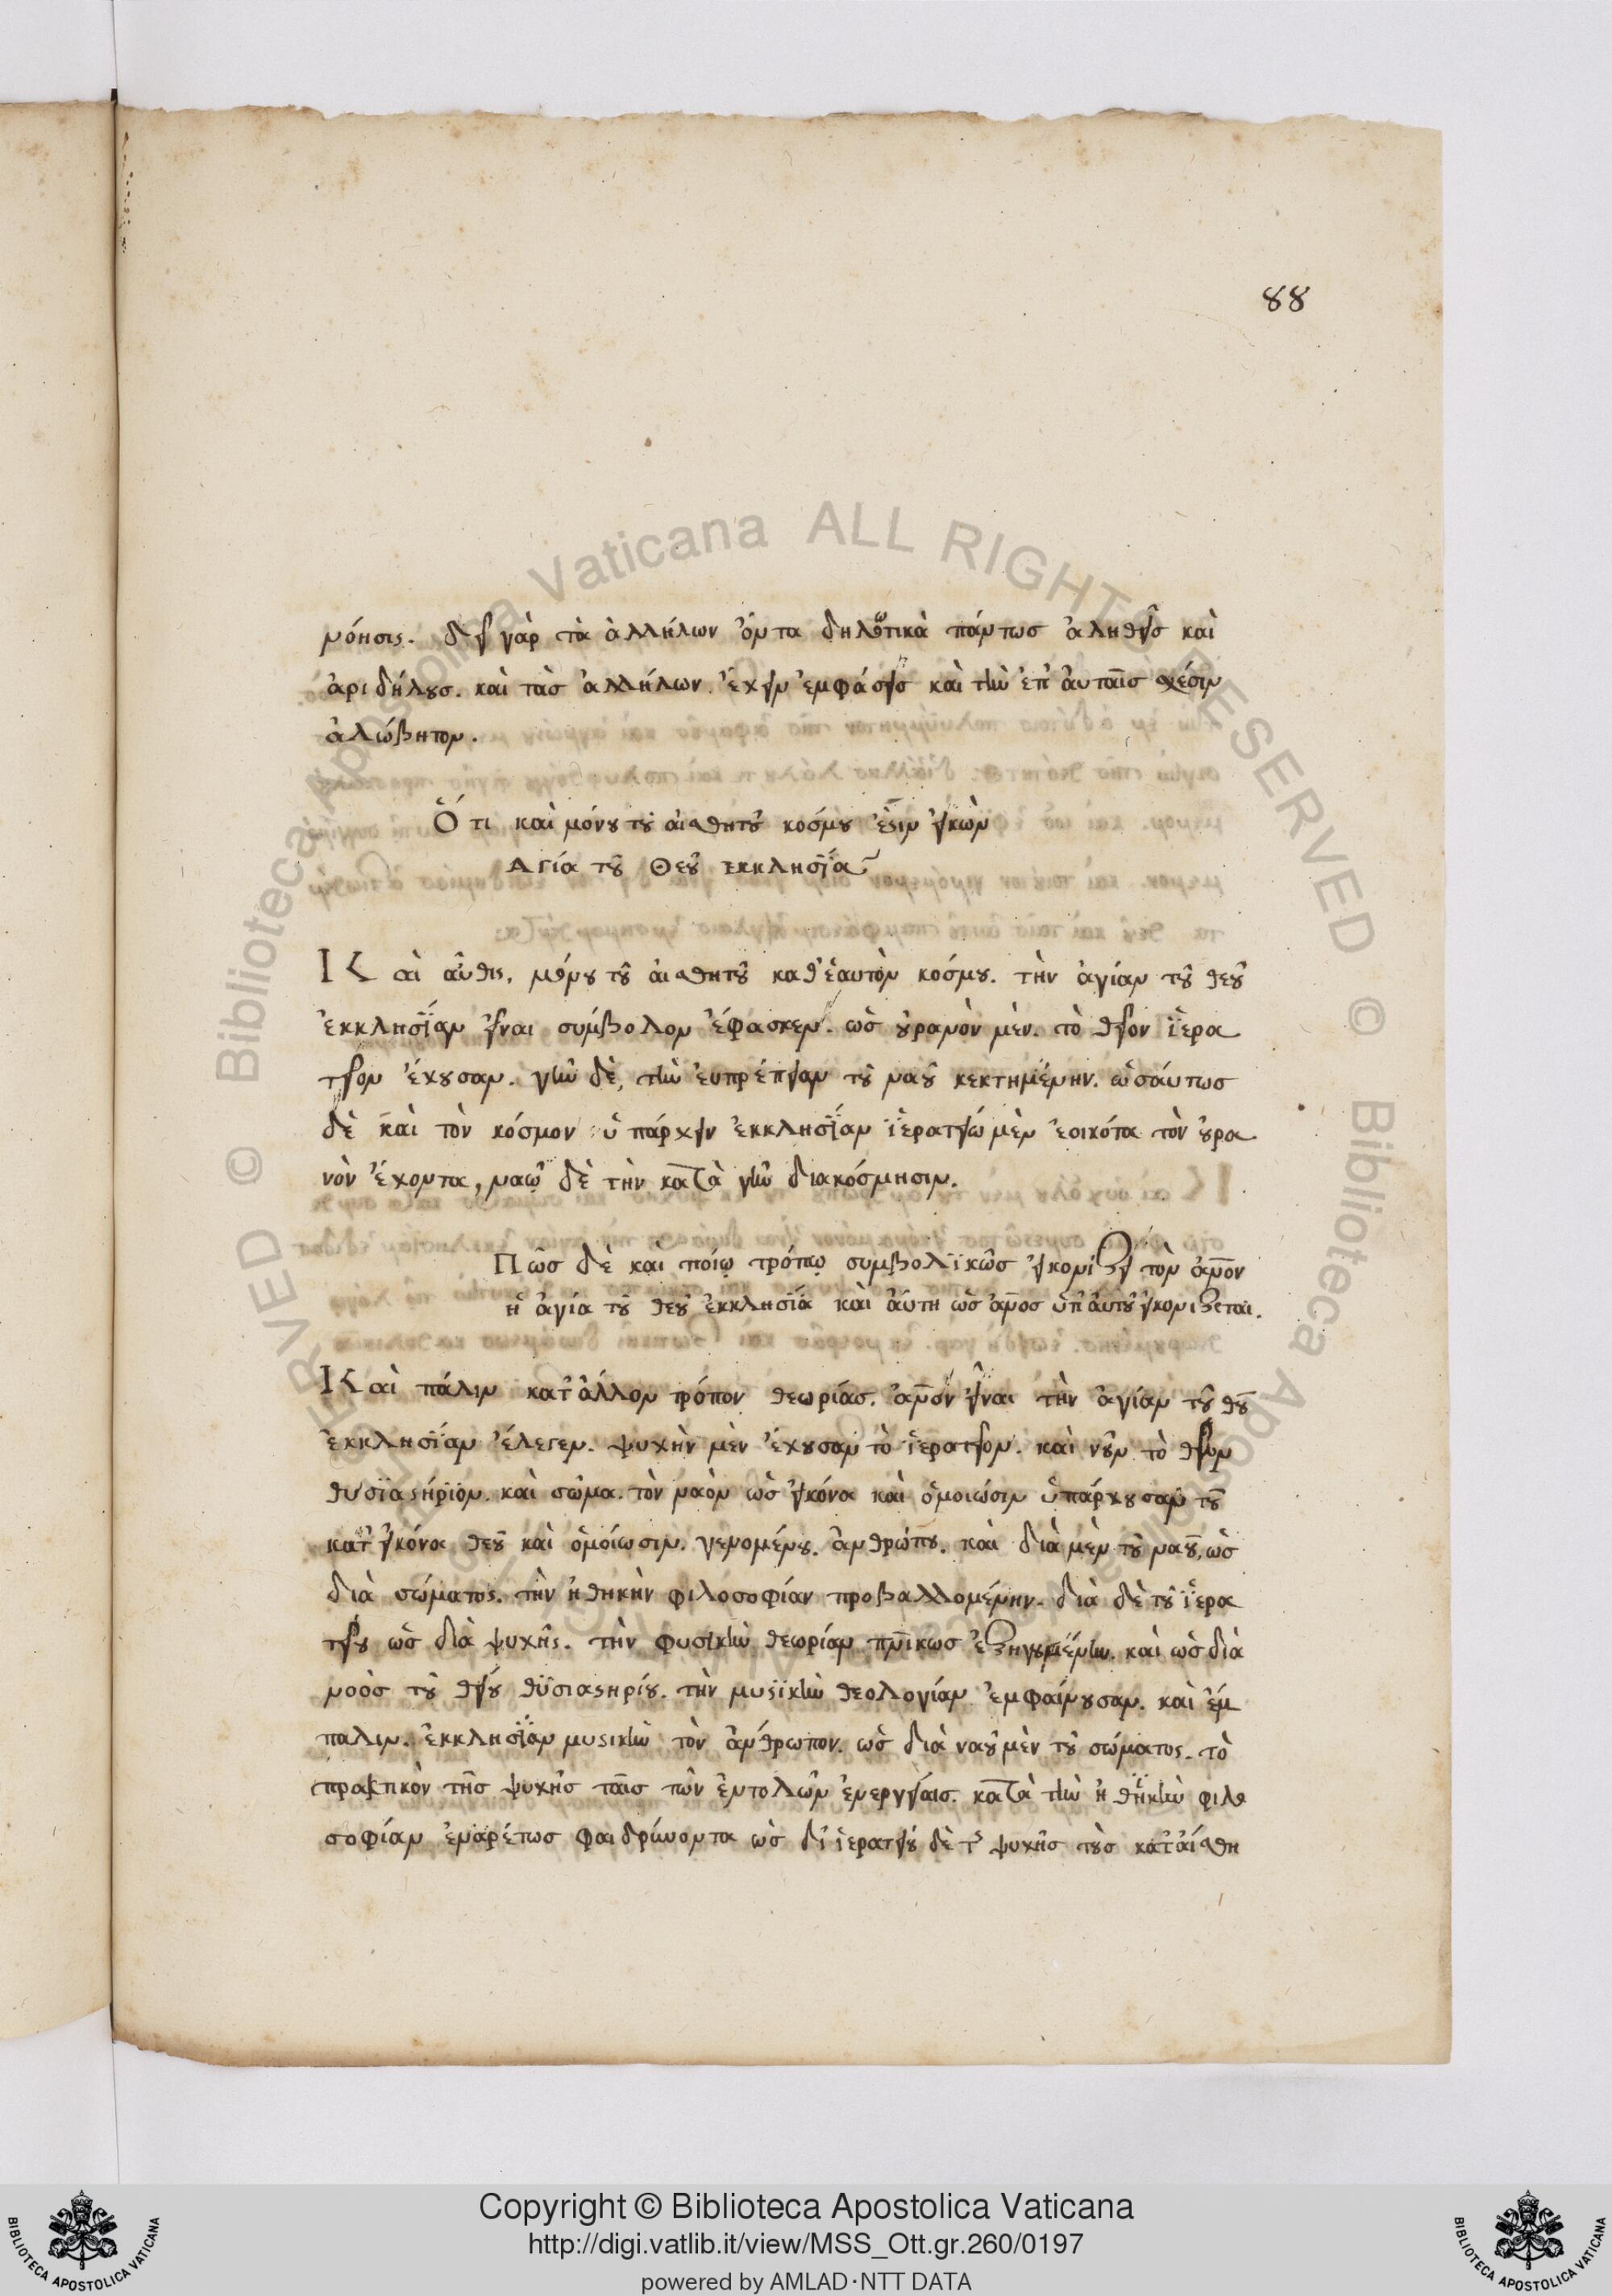 88
νόησις. δεῖ γὰρ τὰ ἀλλήλων ὄντα δηλωτικὰ πάντως ἀληθεῖς καὶ
ἀριδήλους. καὶ τὰς ἀλλήλων ἔχειν ἐμφάσεις καὶ τὴν ἐπ' ἀυταῖς σχέσιν
ἀλώβητον.
Ὅτι καὶ μόνου τοῦ αἰσθητοῦ κοσμου ἐστιν εἰκὼν
Αγία τοῦ Θεοῦ εκκλησία
Καὶ αὖθις, μόνου τοῦ ἀισθητοῦ καθ' ἑαυτὸν κόσμου. τὴν ἁγίαν τοῦ θεοῦ
ἐκκλησίαν εἶναι σύμβολον ἔφασκεν. ὡς οὐρανὸν μὲν. τὸ θεῖον ἱερα
τεῖον ἔχουσαν. γῆν δὲ, τὴν ἐυπρέπειαν τοῦ ναοῦ κεκτημένην. ὡσάυτως
δὲ καὶ τὸν κόσμον ὑπάρχειν ἐκκλησίαν ἱερατείω μὲν ἐοικότα τὸν ουρα
νὸν ἔχοντα, ναῷ δὲ τὴν κατὰ γῆν διακόσμησιν.
Πῶς δὲ καὶ ποίῳ τρόπῳ συμβολικῶς εἰκονίζει τὸν ἄνον
ἡ ἁγία τοῦ θεοῦ ἐκκλησία καὶ ἀύτη ὡς ἄνος ὑπ' ἀυτοῦ εἰκονίζεται.
Καὶ πάλιν κατ' ἄλλον τρόπον θεωρίας. ἄνον εἶναι τὴν ἁγίαν τοῦ θυ
ἐκκλησίαν ἔλεγεν. ψυχὴν μὲν ἔχουσαν τὸ ἱερατεῖον. καὶ νοῦν τὸ θεῖον
θυσιαστήριον. καὶ σῶμα. τὸν ναὸν ὡς εἰκόνα καὶ ὁμοιώσιν ὑπάρχουσαν τοῦ
κατ' εἰκόνα θεοῦ καὶ ὁμοίωσιν. γενομένου. ἀνθρώπου. καὶ διὰ μὲν τοῦ ναοῦ, ὡς
διὰ σώματος. τὴν ἠθηκὴν φιλοσοφίαν προβαλλομένην. διὰ δὲ τοῦ ἱερα
τείου ὡς διὰ ψυχῆς. τὴν φυσικὴν θεωρίαν πνικως ἐξηγουμένην. καὶ ὡς διὰ
νοὸς τοῦ θείου θυσιαστηρίου. τὴν μυστικὴν θεολογίαν ἐμφαίνουσαν. καὶ ἔμ
παλιν. ἐκκλησίαν μυστικὴν τὸν ἄνθρωπον. ὡς διὰ ναοῦ μὲν τοῦ σώματος. τὸ
πρακτικὸν τῆς ψυχῆς ταῖς τῶν ἐντολῶν ἐνεργείαις. κατὰ τὴν ἠθηκὴν φιλο
σοφίαν ἐναρέτως φαιδρύνοντα ὡς δι' ἱερατείου δὲ τῆς ψυχῆς τοὺς κατ' αἴσθη
Copyright © Biblioteca Apostolica Vaticana
http://digi.vatlib.it/view/MSS_Ott.gr.260/0197
powered by AMLAD·NTT DATA